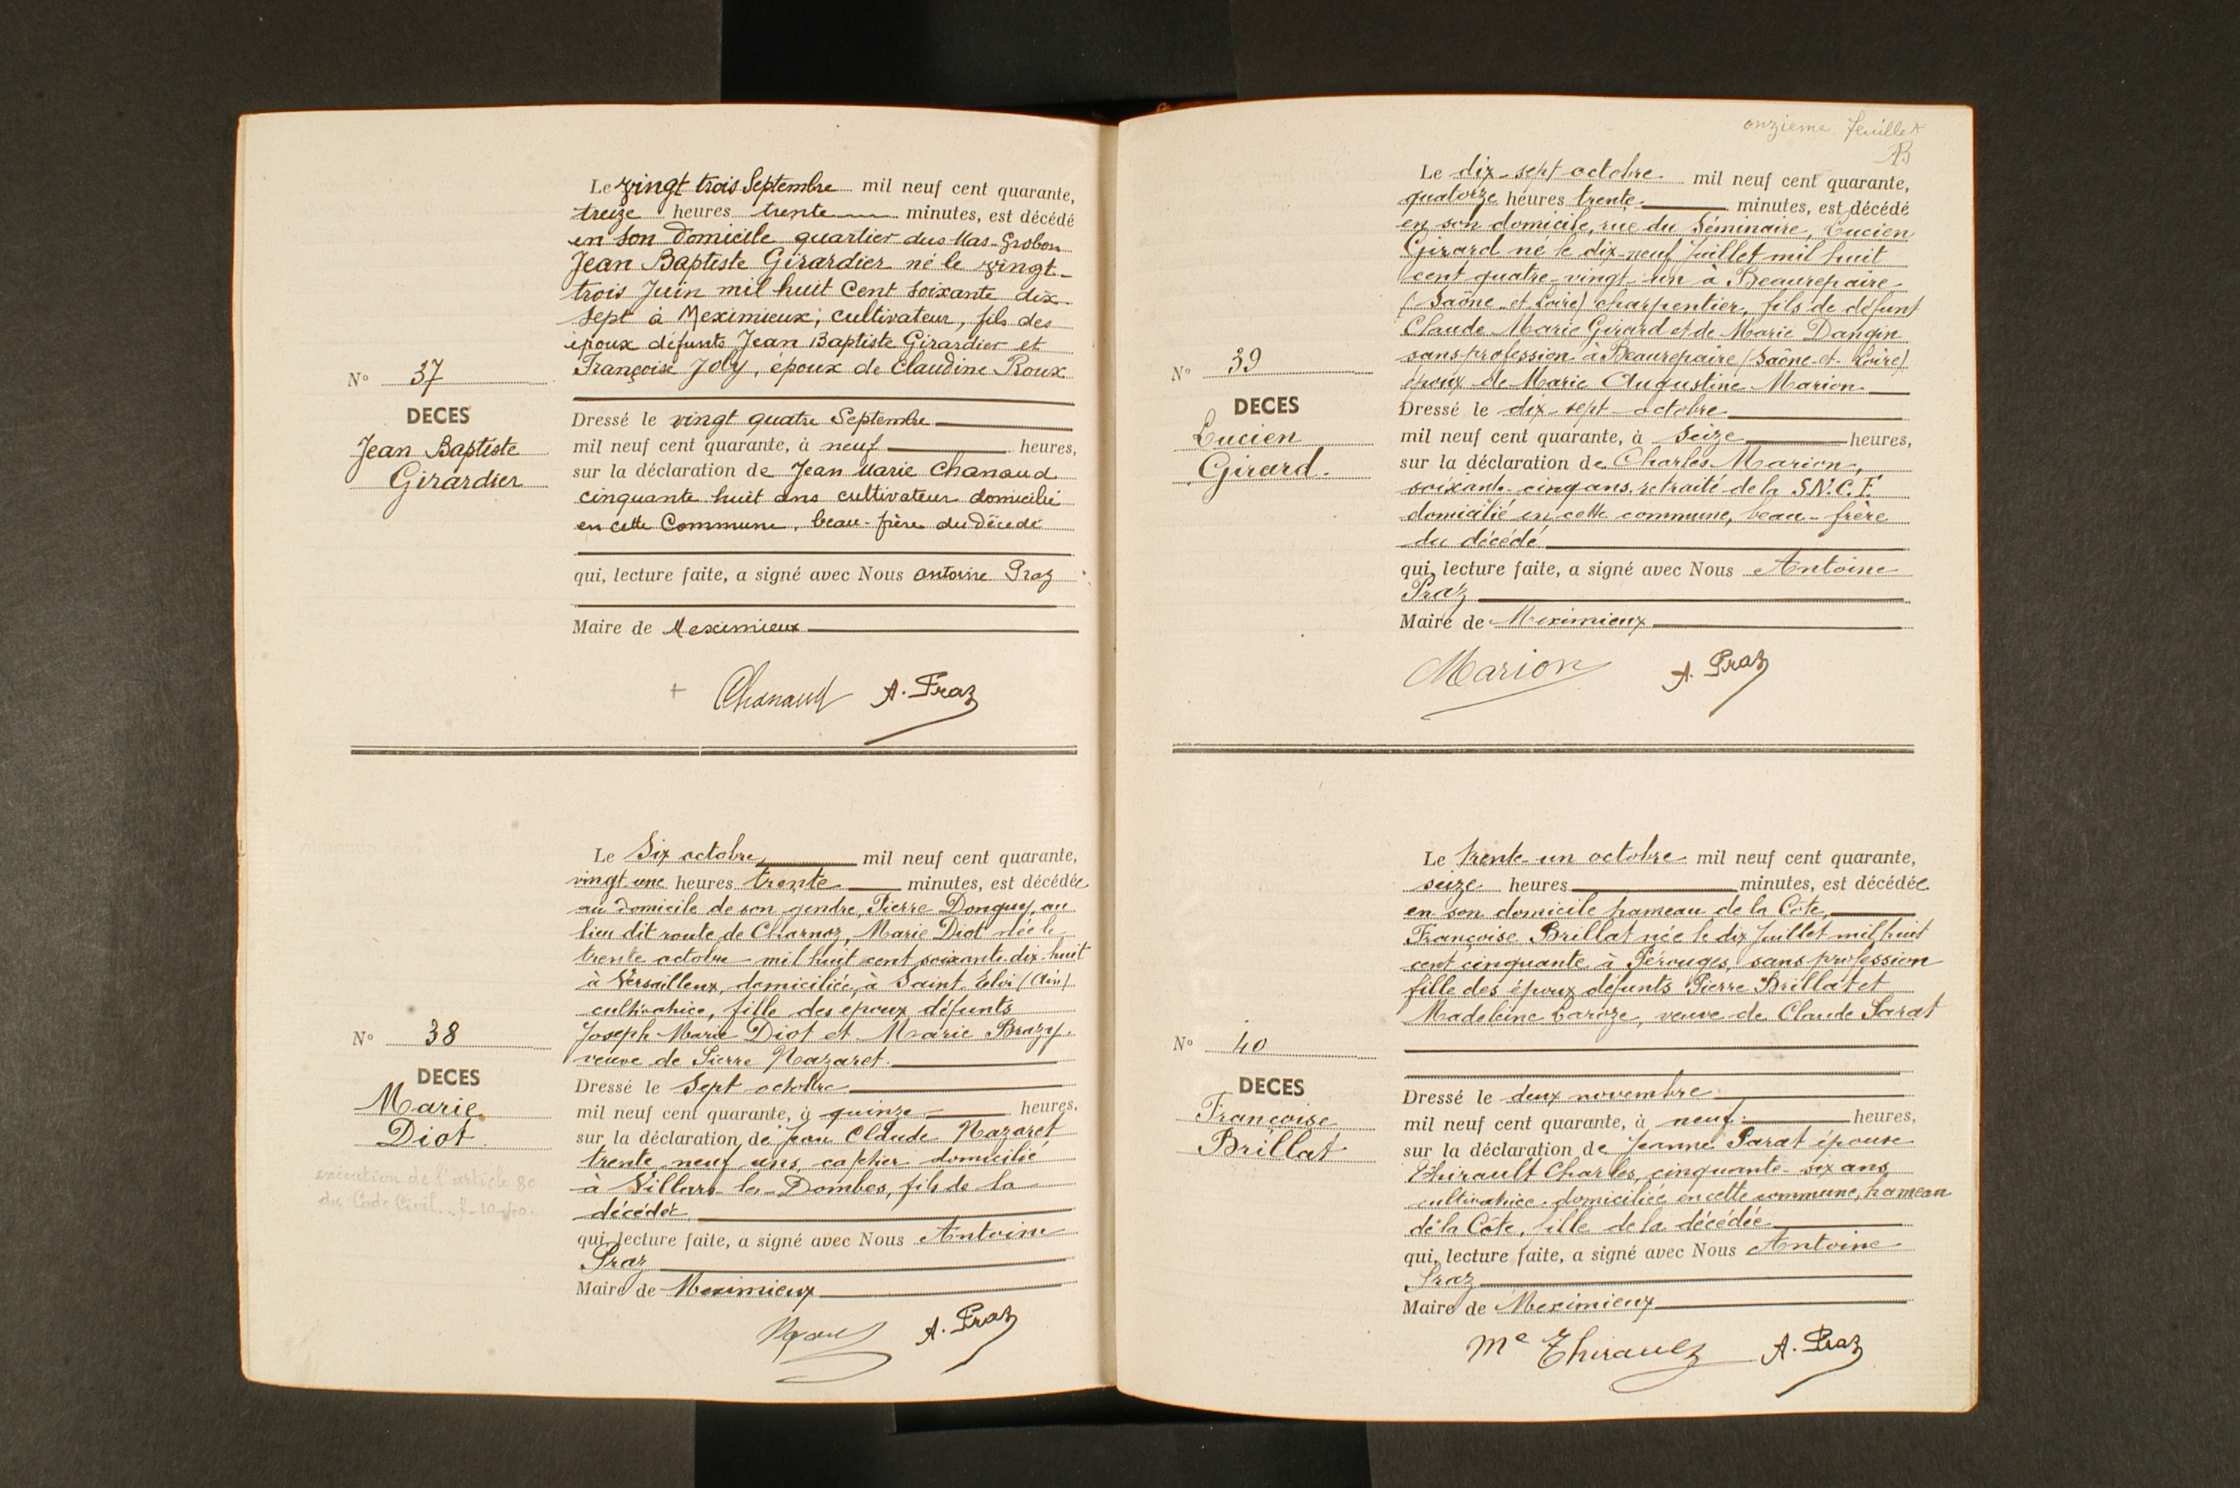 Le vingt trois Septembre mil neuf cent quarante,
treize heures trente minutes, est décédé
en son domicile quartier du Mas-Grobon
Jean Baptiste Girardier né le vingt-
trois Juin mil huit cent soixante dix-
sept à Meximieux, cultivateur, fils des
époux défunts Jean Baptiste Girardier et
Françoise Joly, époux de Claudine Roux
N° 37
DECES
Jean Baptiste
Girardier
Dressé le vingt quatre Septembre
mil neuf cent quarante, à neuf heures,
sur la déclaration de Jean Marie Chanaud
cinquante huit ans cultivateur domicilié
en cette Commune, beau-frère du Décédé
qui, lecture faite, a signé avec Nous Antoine Praz
Maire de Meximieux
Chanaud A. Praz
Le Six octobre mil neuf cent quarante,
vingt-une heures trente minutes, est décédée
au domicile de son gendre, Pierre Donguy, au
lieu dit route de Charnoz, Marie Diot née le
trente octobre mil huit cent soixante-dix-huit
à Versailleux, domiciliée, à Saint Eloi (Ain)
cultivatrice, fille des époux défunts
Joseph Marie Diot et Marie Brazy.
veuve de Pierre Nazaret.
N° 38
DECES
Marie
Diot
exécution de l'article 80
du Code Civil.
Dressé le Sept octobre
mil neuf cent quarante, à quinze heures.
sur la déclaration de Jean Claude Nazaret
trente neuf ans, domicilié
à Villars-les-Dombes, fils de la
décédée
qui, lecture faite, a signé avec Nous Antoine
Praz
Maire de Meximieux
A. Praz
onzieme feuillet
Le dix-sept octobre mil neuf cent quarante,
quatorze heures trente minutes, est décédé
en son domicile, rue du Séminaire, Lucien
Girard né le dix-neuf Juillet mil huit
cent quatre-vingt-un à Beaurepaire
(Saône-et-Loire) charpentier, fils de défunt
Claude Marie Girard et de Marie Dangin
sans profession à Beaurepaire (Saône-et-Loire)
époux de Marie Augustine Marion.
N° 39
DECES
Lucien
Girard.
Dressé le dix-sept octobre
mil neuf cent quarante, à Seize heures,
sur la déclaration de Charles Marion,
soixante-cinq ans, retraité de la S.N.C.F.
domicilié en cette commune, beau-frère
du décédé
qui, lecture faite, a signé avec Nous Antoine
Praz
Maire de Meximieux
Marion A. Praz
Le trente-un octobre mil neuf cent quarante,
seize heures minutes, est décédée
en son domicile hameau de la Côte,
Françoise Brillat née le dix Juillet mil huit
cent cinquante à Pérouges, sans profession
fille des époux défunts Pierre Brillat et
Madeleine Caroze, veuve de Claude Sarat
N° 40
DECES
Françoise
Brillat
Dressé le deux novembre
mil neuf cent quarante, à neuf heures,
sur la déclaration de Jeanne Sarat épouse
Thirault Charles, cinquante-six ans,
cultivatrice domiciliée en cette commune, hameau
de la Côte, fille de la décédée
qui, lecture faite, a signé avec Nous Antoine
Praz
Maire de Meximieux
Me Thirault A. Praz